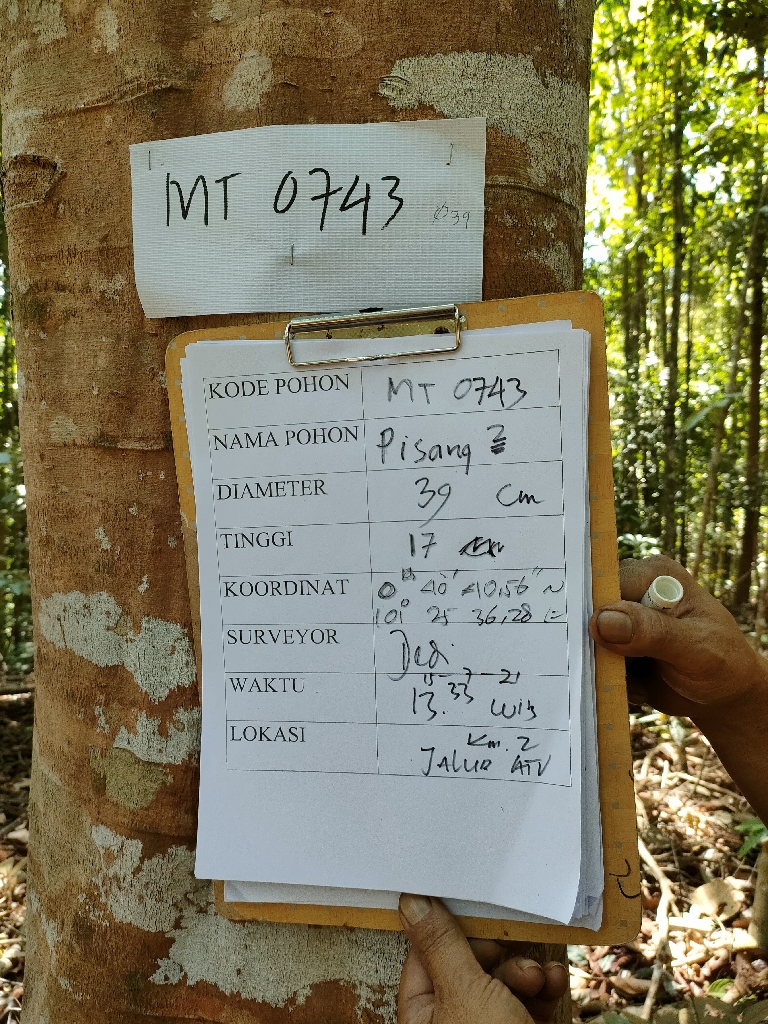 MT 0743
39
KODE POHON MT 0743
NAMA POHON Pisang 2
DIAMETER 39 Cm
TINGGI 17
KOORDINAT 0° 40' 40,56" N
101° 25 36,28 E
SURVEYOR Dedi
15-7-21
WAKTU 13.33 WIB
Km. 2
LOKASI JALUR ATV
CL